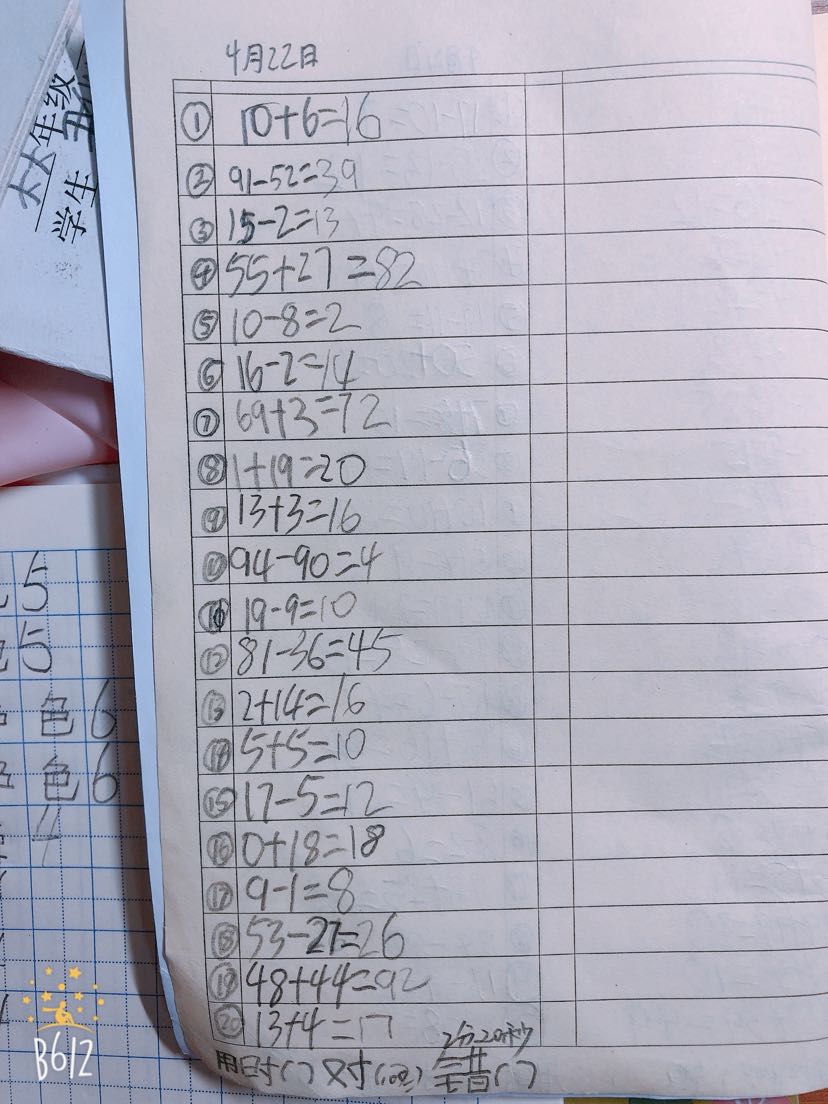 4月22日
① 10+6=16
② 91-52=39
③ 15-2=13
④ 55+27=82
⑤ 10-8=2
⑥ 16-2=14
⑦ 69+3=72
⑧ 1+19=20
⑨ 13+3=16
⑩ 94-90=4
⑪ 19-9=10
⑫ 81-36=45
⑬ 2+14=16
⑭ 5+5=10
⑮ 17-5=12
⑯ 0+18=18
⑰ 9-1=8
⑱ 53-27=26
⑲ 48+44=92
⑳ 13+4=17
2分20秒
用时( ) 对( ) 错( )
年级
学生
5
5
色6
色6
4
B612